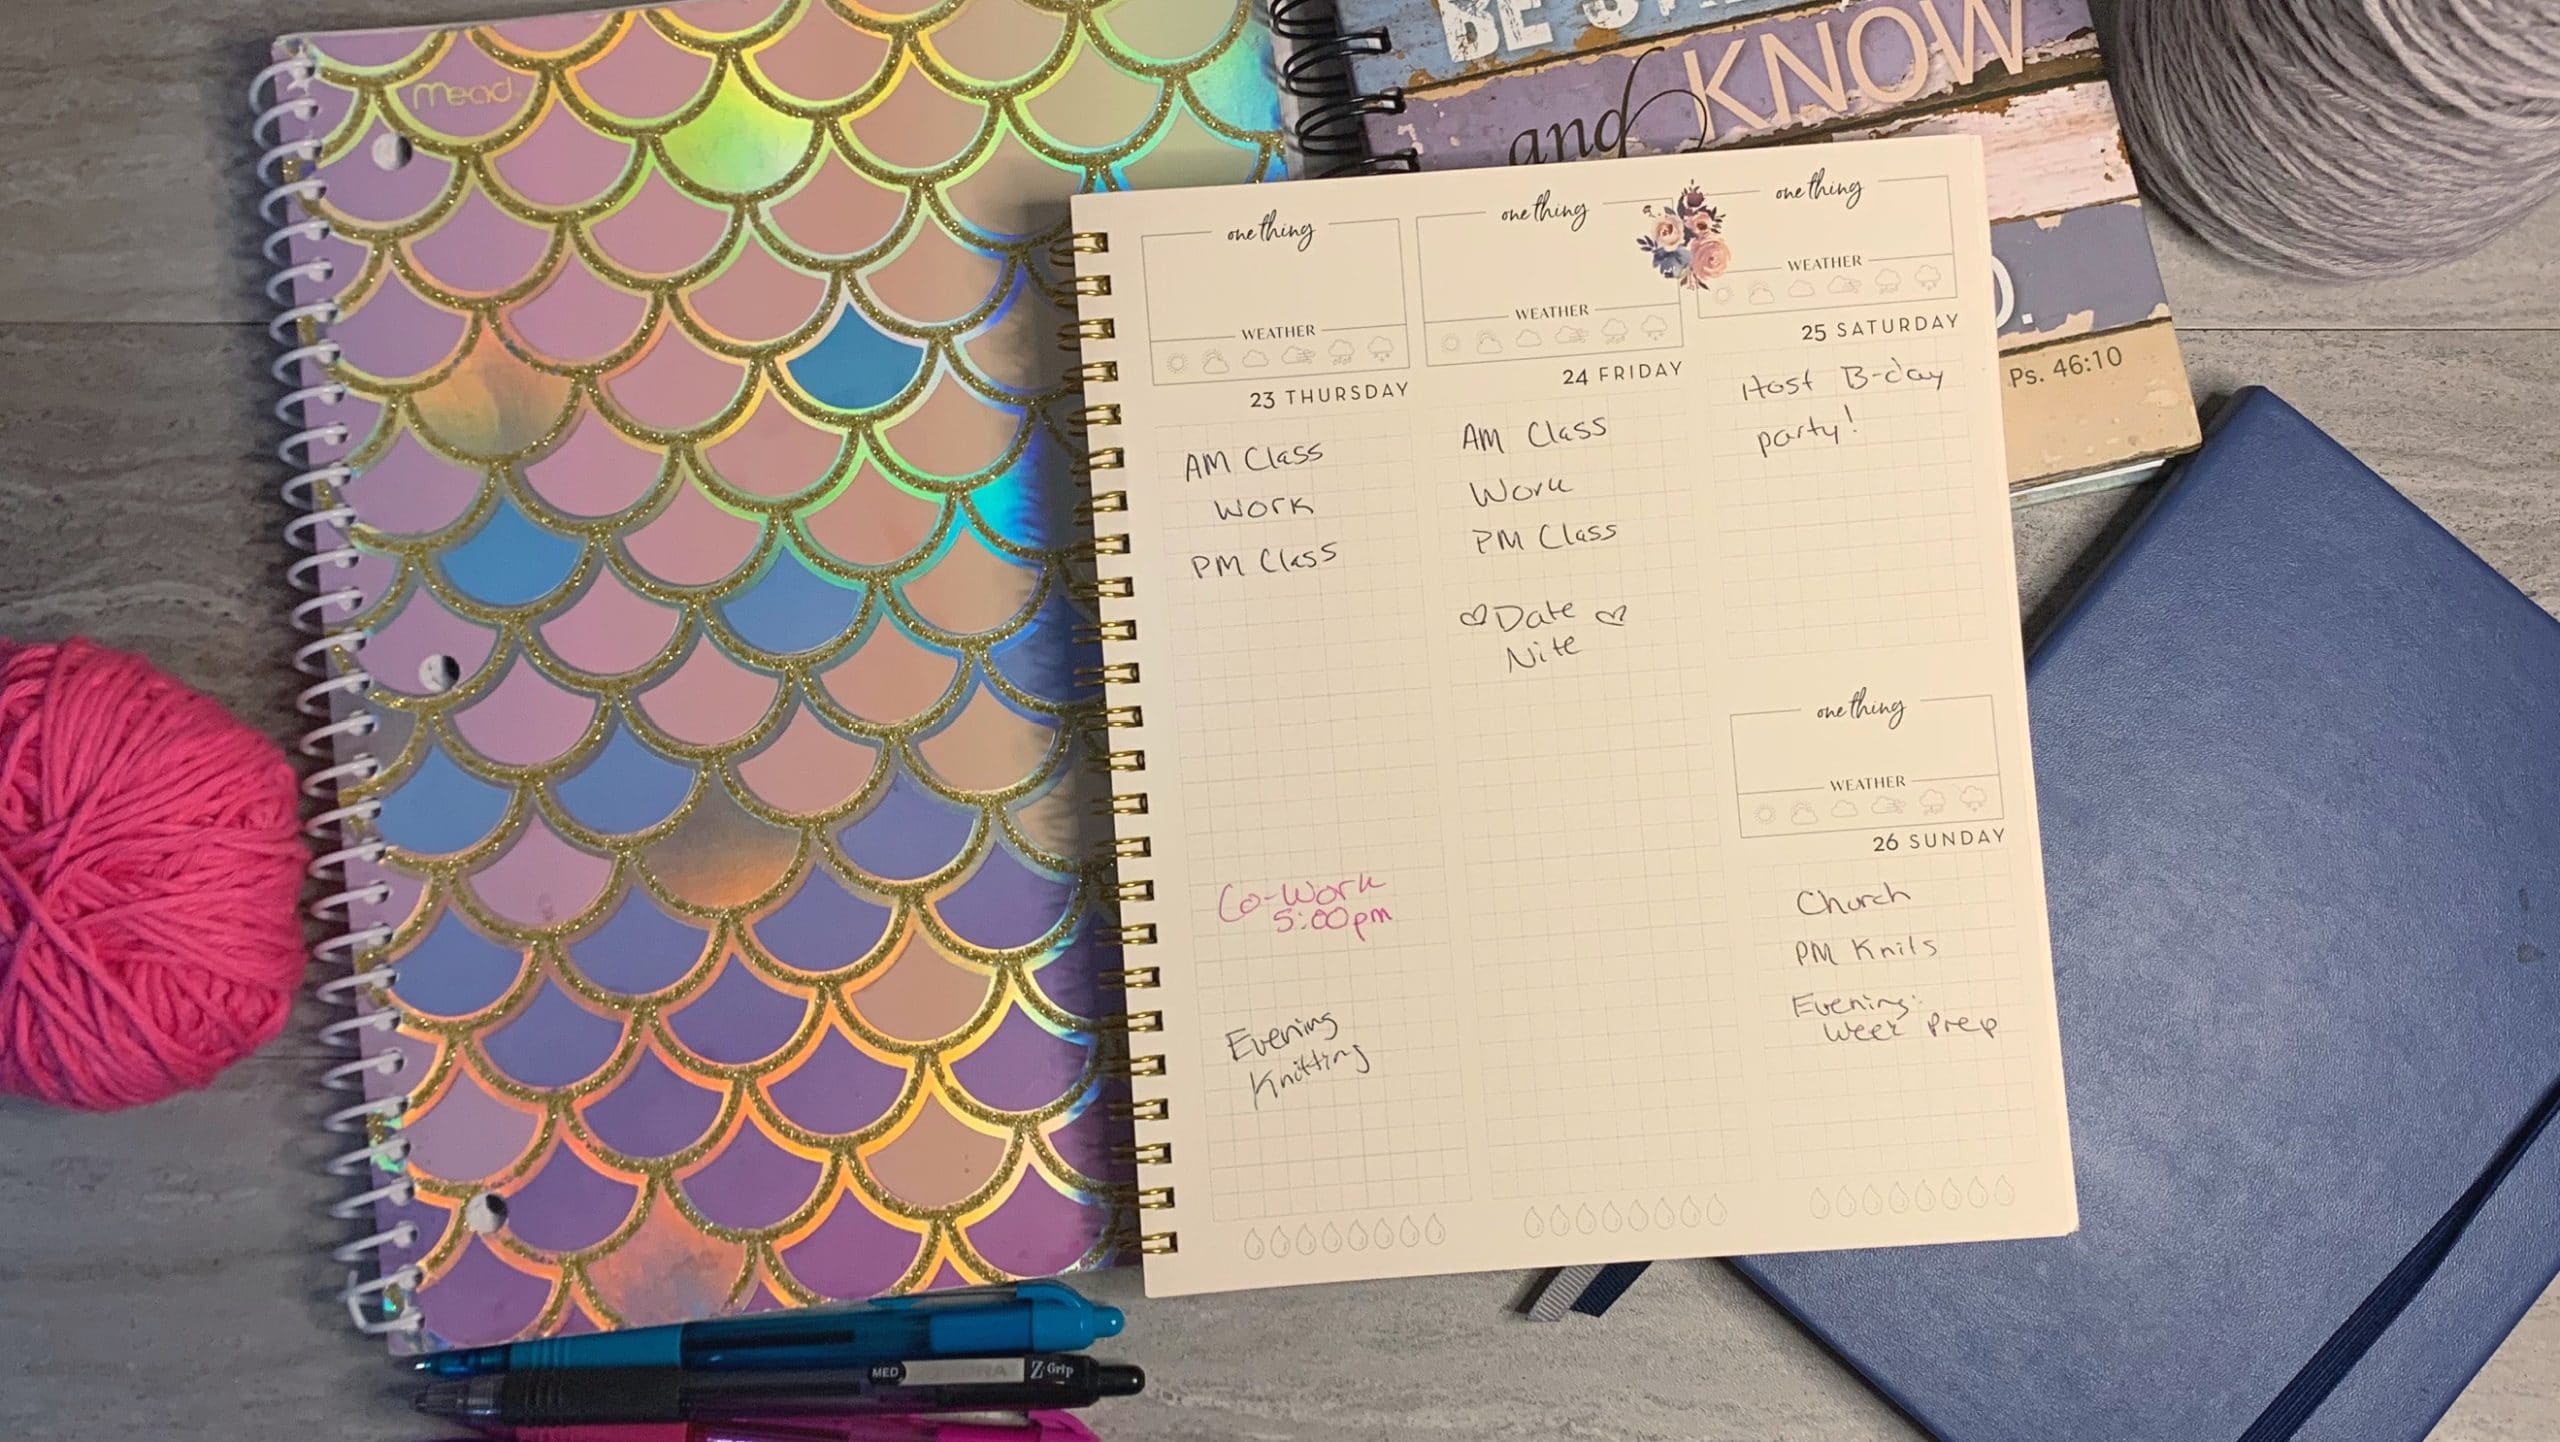 mead
BE
and KNOW
Ps. 46:10
one thing
WEATHER
23 THURSDAY
AM Class
Work
PM Class
Co-Work
5:00pm
Evening
Knitting
one thing
WEATHER
24 FRIDAY
AM Class
Work
PM Class
Date
Nite
one thing
WEATHER
25 SATURDAY
Host B-day
party!
one thing
WEATHER
26 SUNDAY
Church
PM Knits
Evening:
Week Prep
MED
Z-Grip